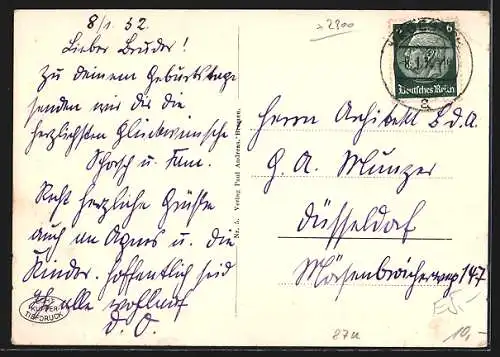 8/1. 32.
Lieber Bruder!
Zu deinem Geburtstage
senden wir dir die
herzlichsten Glückwünsche
Schorsch u. Fam.
Recht herzliche Grüße
auch an Agnes u. die
Kinder. Hoffentlich seid
Ihr alle wohlauf
D. O.
KUPFER-
TIEFDRUCK
Nr. 5. Verlag Paul
2900
6
Deutsches Reich
a
Herrn Architekt B.d.A.
G. A. Munzer
Düsseldorf
Mörsenbroicherweg 147
87a
10,-